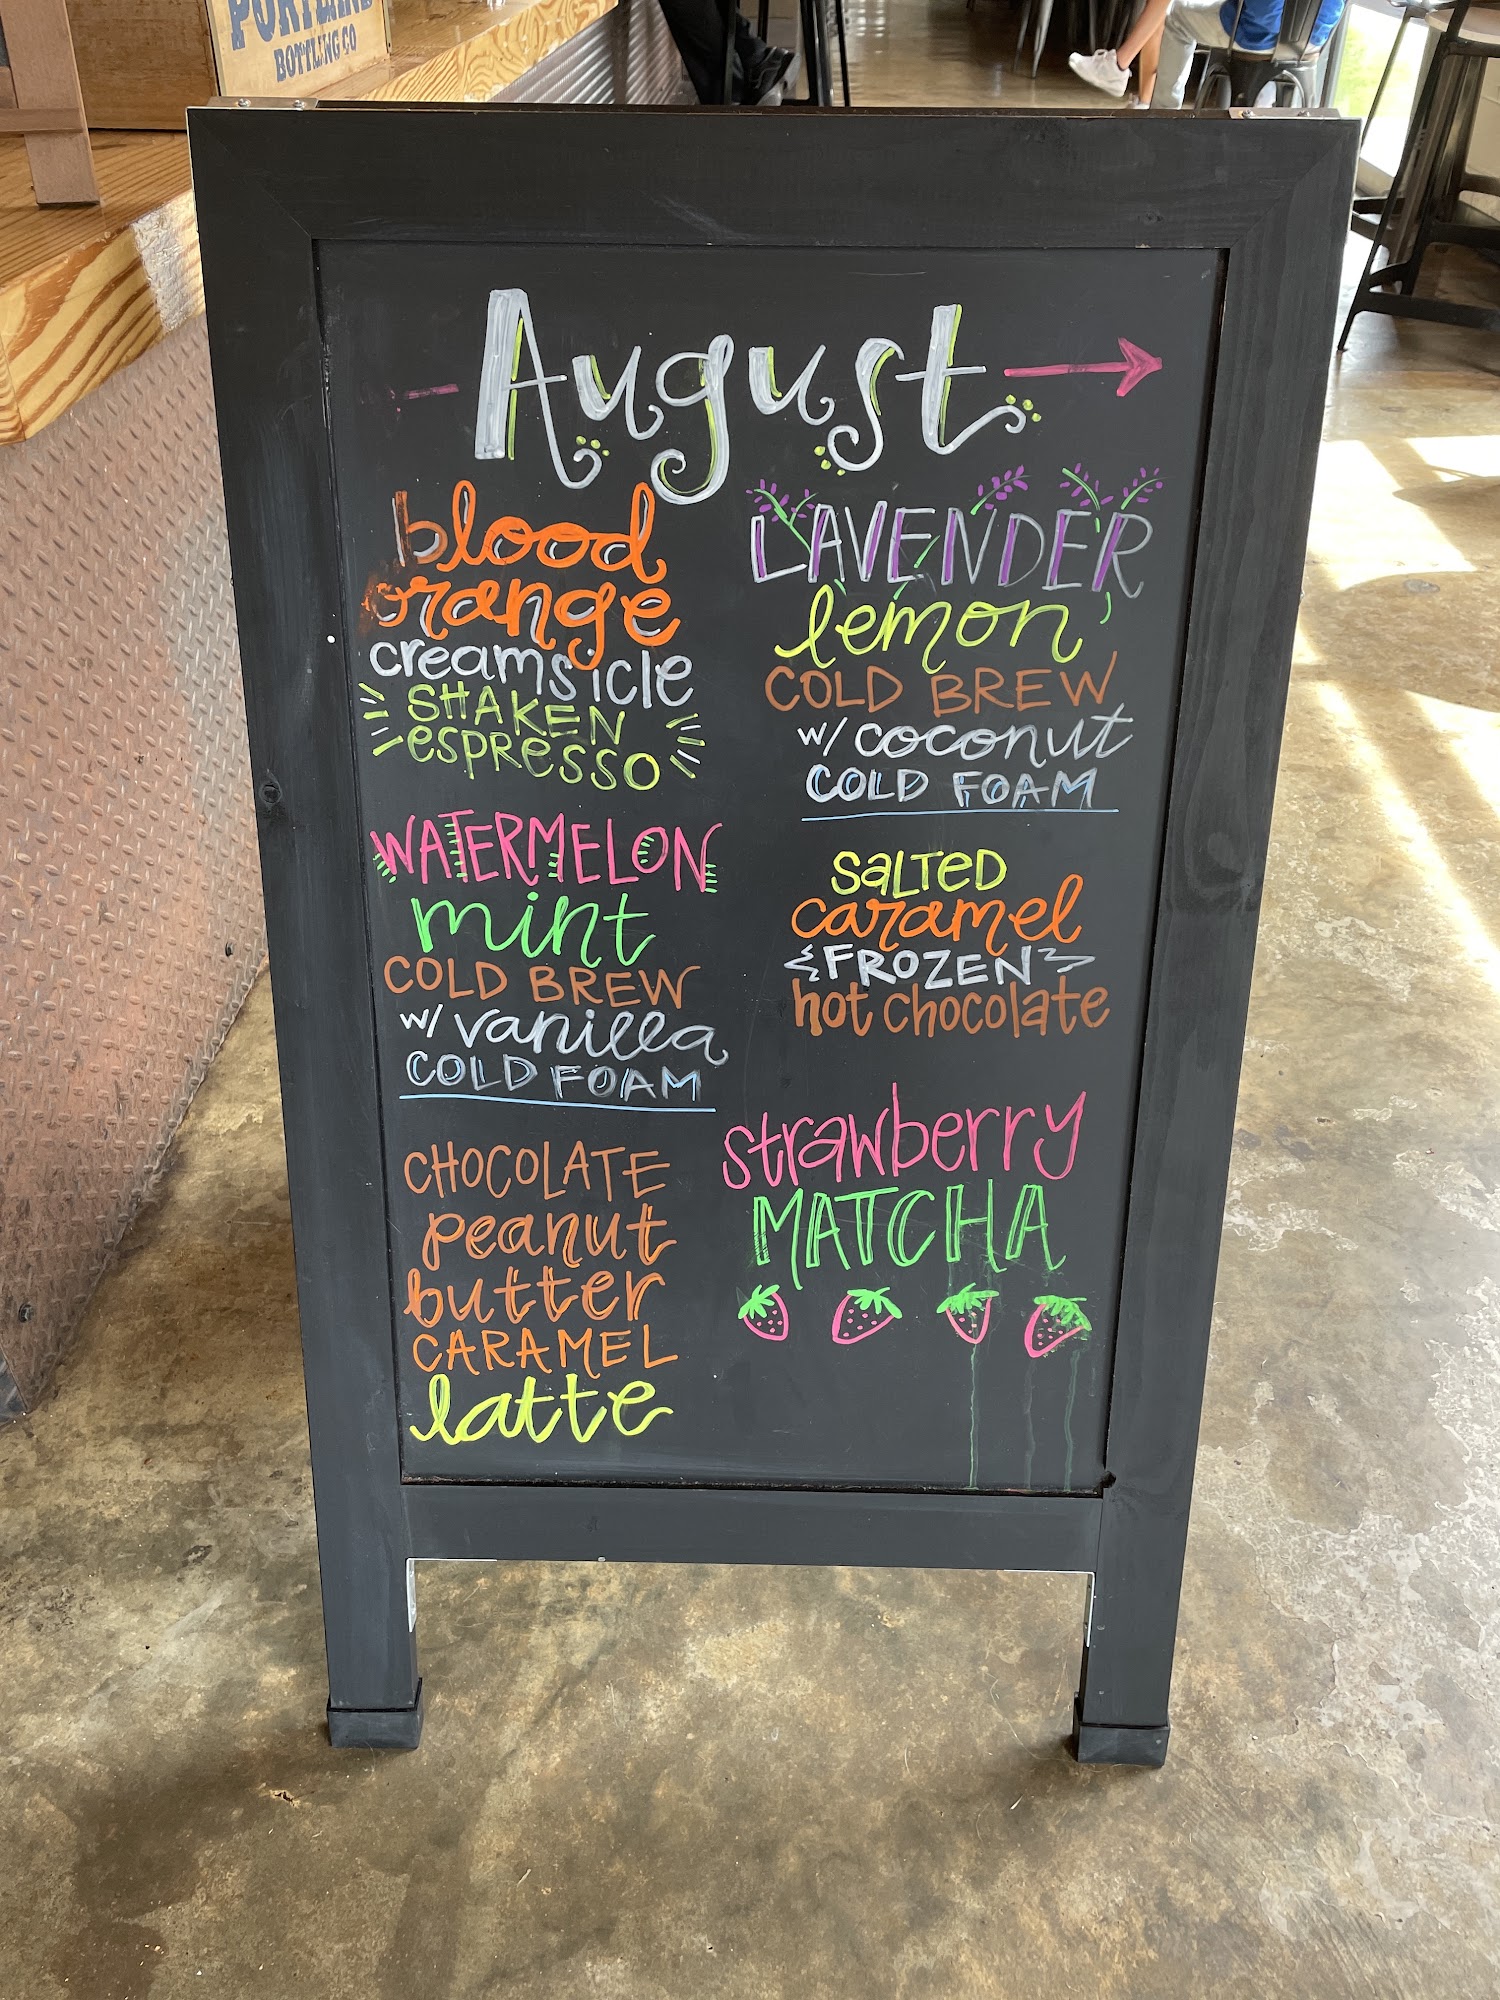 PORTLAND
BOTTLING CO
August
blood
orange
creamsicle
SHAKEN
espresso
WATERMELON
mint
COLD BREW
w/ vanilla
COLD FOAM
CHOCOLATE
peanut
butter
CARAMEL
latte
LAVENDER
lemon
COLD BREW
w/ coconut
COLD FOAM
SALTED
caramel
FROZEN
hot chocolate
strawberry
MATCHA